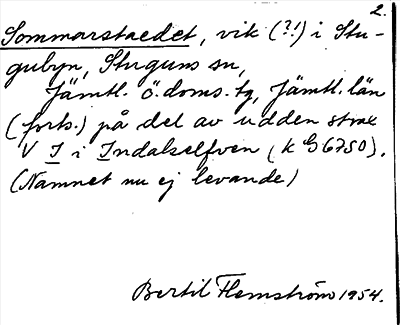 2.
Sommarstaedet, vik (?!) i Stu-
gubyn, Stuguns sn,
Jämtl. ö. doms. tg, Jämtl. län
(forts.) på del av udden strax
V I i Indalselfven (k G 6750).
(Namnet nu ej levande)
Bertil Flemström 1954.